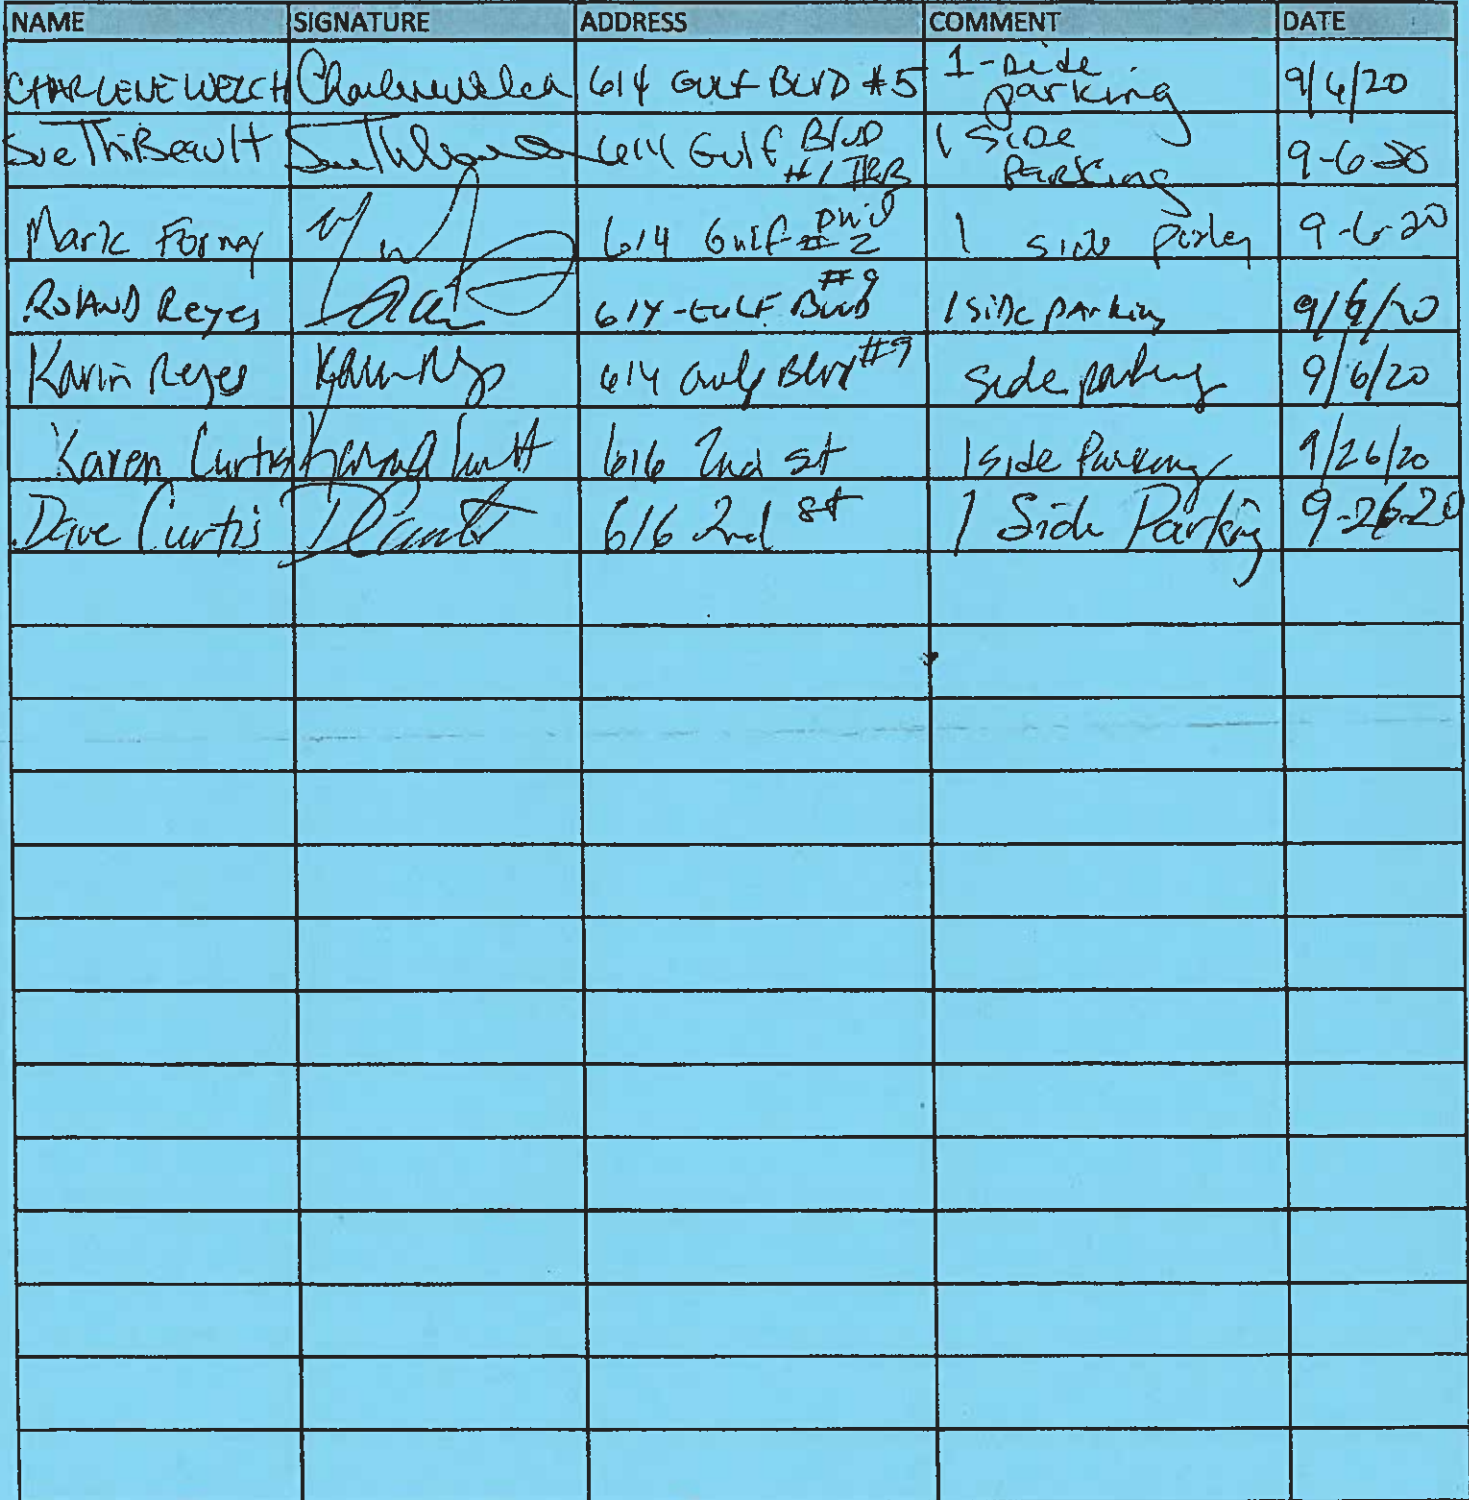 NAME SIGNATURE ADDRESS COMMENT DATE
CHARLENE WELCH Charlene Welch 614 Gulf BLVD #5 1-side parking 9/6/20
Sue ThiBeault Sue Thibeault 614 Gulf Blvd #1 IRB 1 Side Parking 9-6-20
Mark Forney 614 Gulf Blvd #2 1 side 9-6-20
ROLAND Reyes 614-GULF BLVD #9 1 side parking 9/6/20
Karin Reyes 614 Gulf Blvd #9 side parking 9/6/20
Karen Curtis 616 2nd st 1 side Parking 9/26/20
Dave Curtis 616 2nd st 1 Side Parking 9-26-20